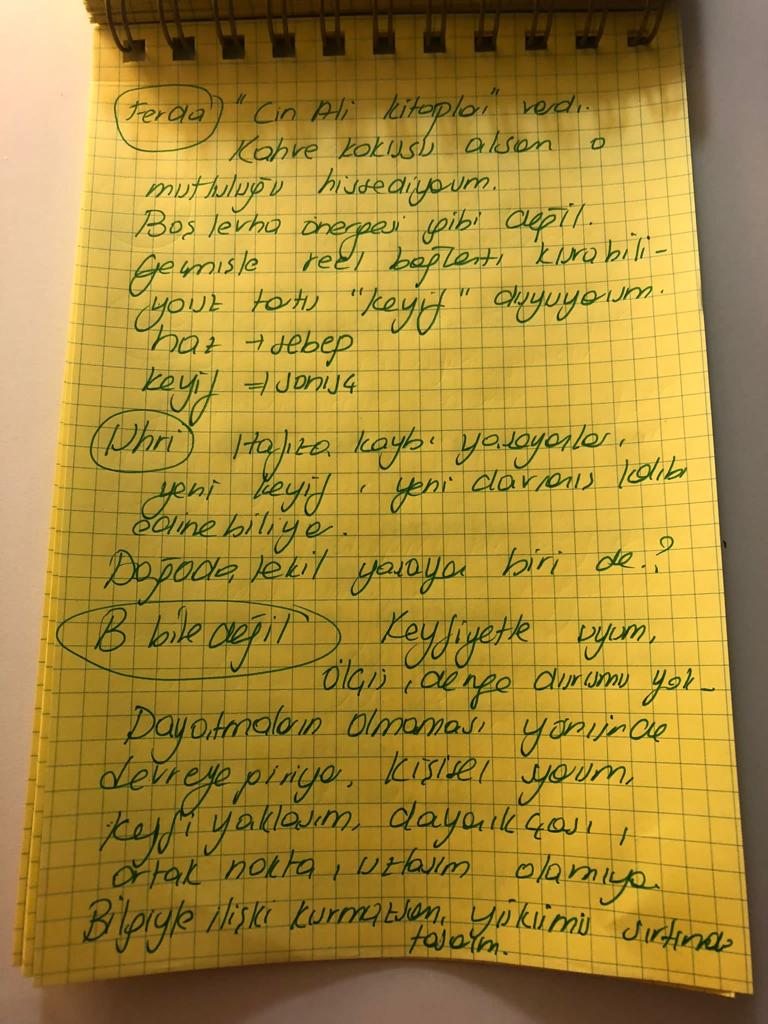 Ferda "Cin Ali kitapları" verdi.
Kahve kokusu alsam o
mutluluğu hissediyorum.
Boş levha önergesi gibi değil.
Geçmişle reel bağlantı kurabili-
yorsz tatu "keyif" duyuyorum.
haz → sebep
keyif ⇒ sonuç
Nuri Hafıza kaybı yaşayanlar,
yeni keyif, yeni davranış kalıbı
edinebiliyo.
Doğada tekil yaşaya biri de.?
B bile değil Keyfiyetle uyum,
ölçü, denge durumu yok_
Dayatmaların olmaması yönünde
devreye giriyo. Kişisel yorum,
keyfi yaklaşım, dayanıkçası,
ortak nokta, uzlaşım olamıyo.
Bilgiyle ilişki kurmazsan, yükümü sırtında
taşırım.